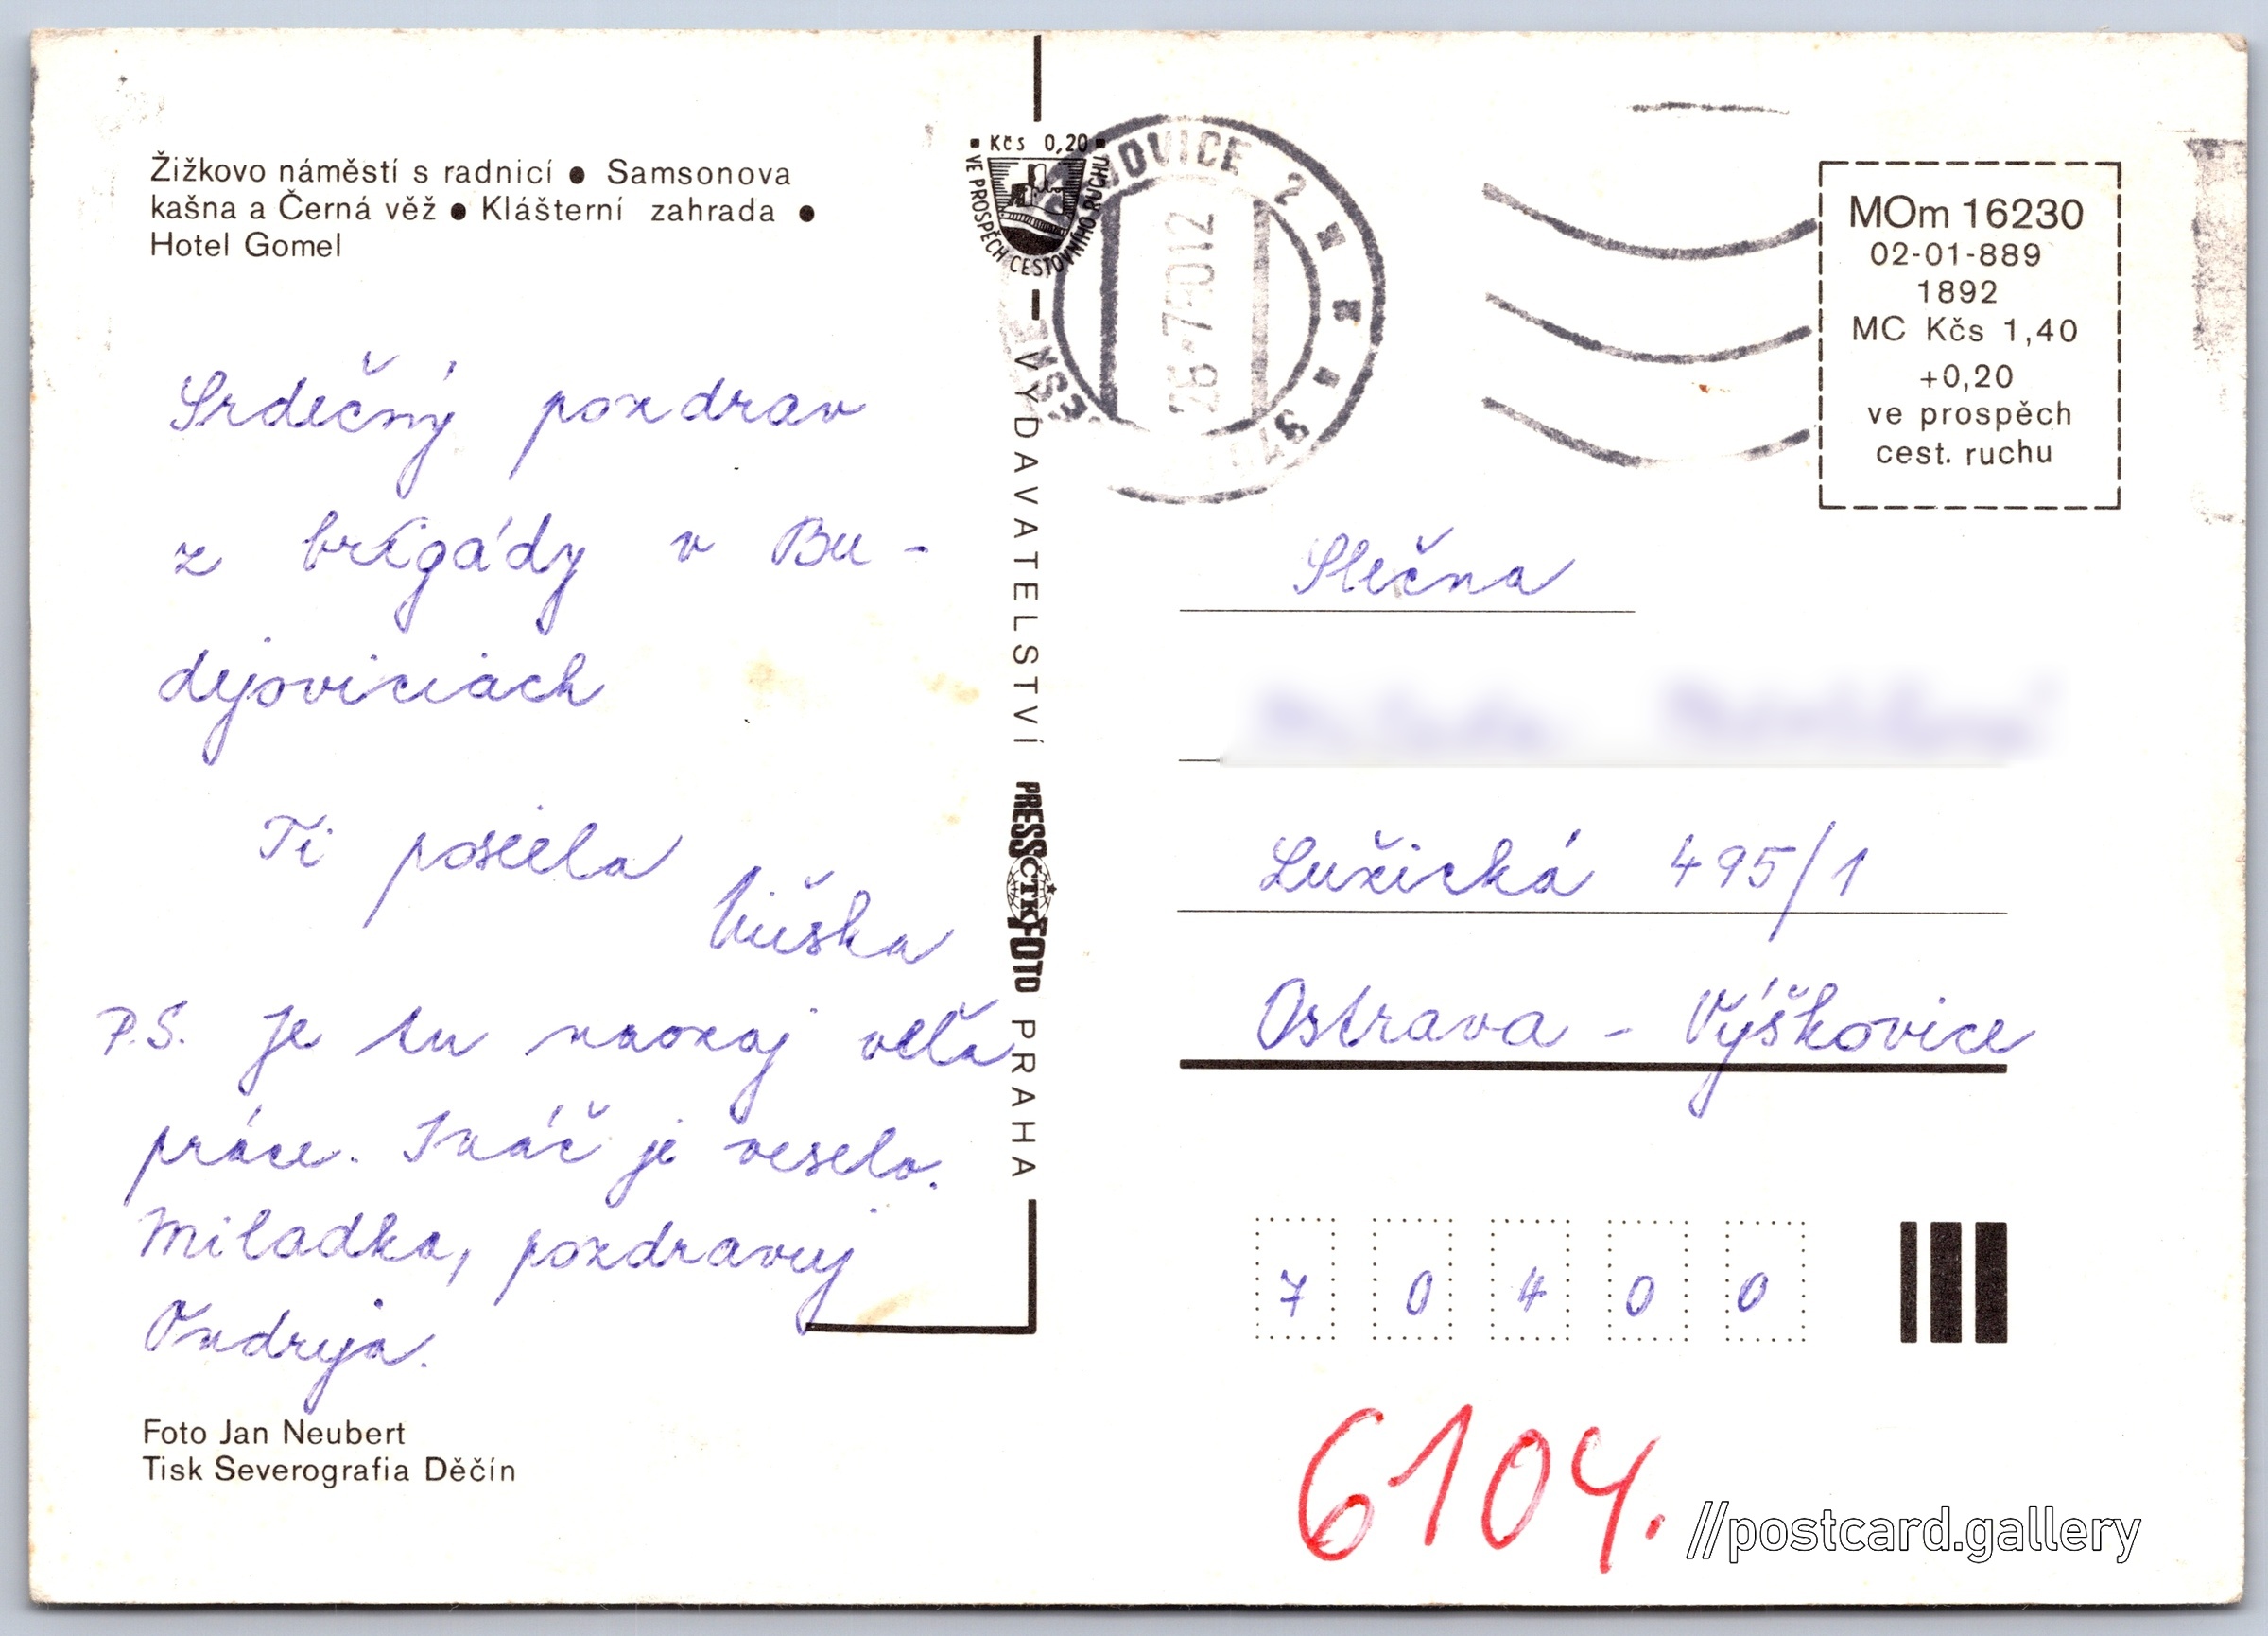 Žižkovo náměstí s radnicí ● Samsonova
kašna a Černá věž ● Klášterní zahrada ●
Hotel Gomel
Srdečný pozdrav
z brigády v Bu -
dejoviciach
Ti posiela
P.S. Je tu naozaj veľa
práce. Ináč je veselo.
Miladka, pozdravuj
Ondreja.
Foto Jan Neubert
Tisk Severografia Děčín
Kčs 0,20
VE PROSPĚCH CESTOVNÍHO RUCHU
VYDAVATELSTVÍ PRESSFOTO PRAHA
ČTK
JOVICE 2
26.-7.-7 012
MOm 16230
02-01-889
1892
MC Kčs 1,40
+0,20
ve prospěch
cest. ruchu
Slečna
Lužická 495/1
Ostrava - Výškovice
7 0 4 0 0
6104.
//postcard.gallery